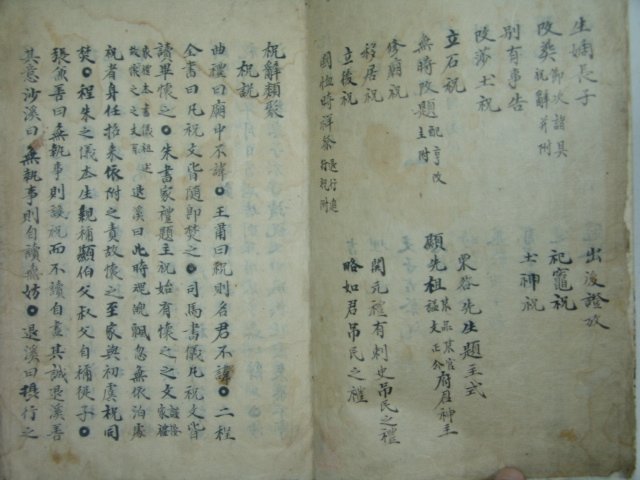 生嫡長子
改葬祝辭并附
別有事告
改莎土祝
立石祝
無時改題主附
修廟祝
移居祝
立後祝
國恤時祥祭
出後證放
祀竈祝
土神祝
栗谷先生題主式
顯先祖某品某官府君神主
開元禮有刺史吊民之禮
略如君吊民之禮
祝辭類聚
祝說
曲禮曰廟中不諱○王甫曰祝則名君不諱○二程
全書曰凡祝文皆隨即焚之○司馬書儀凡祝文皆
讀畢懷之○朱書家禮題主祝始有懷之之文
退溪曰此時理魂飄忽無依泊處
祝者身任招來依附之責故懷之至家與初虞祝同
焚○程朱之儀本生親補顯伯父叔父自補從子○
張魚吾曰無執事則設祝而不讀自盡其誠退溪善
其意沙溪曰無執事則自讀無妨○退溪曰攝行之